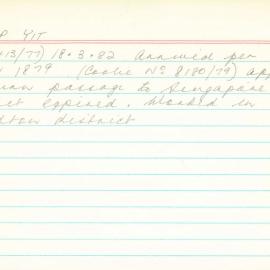 P YIT
13/77) 18.3.82 Arrived per
1879 (Cooke No 8180/79) app
passage to Singapore
expired. Worked in
district